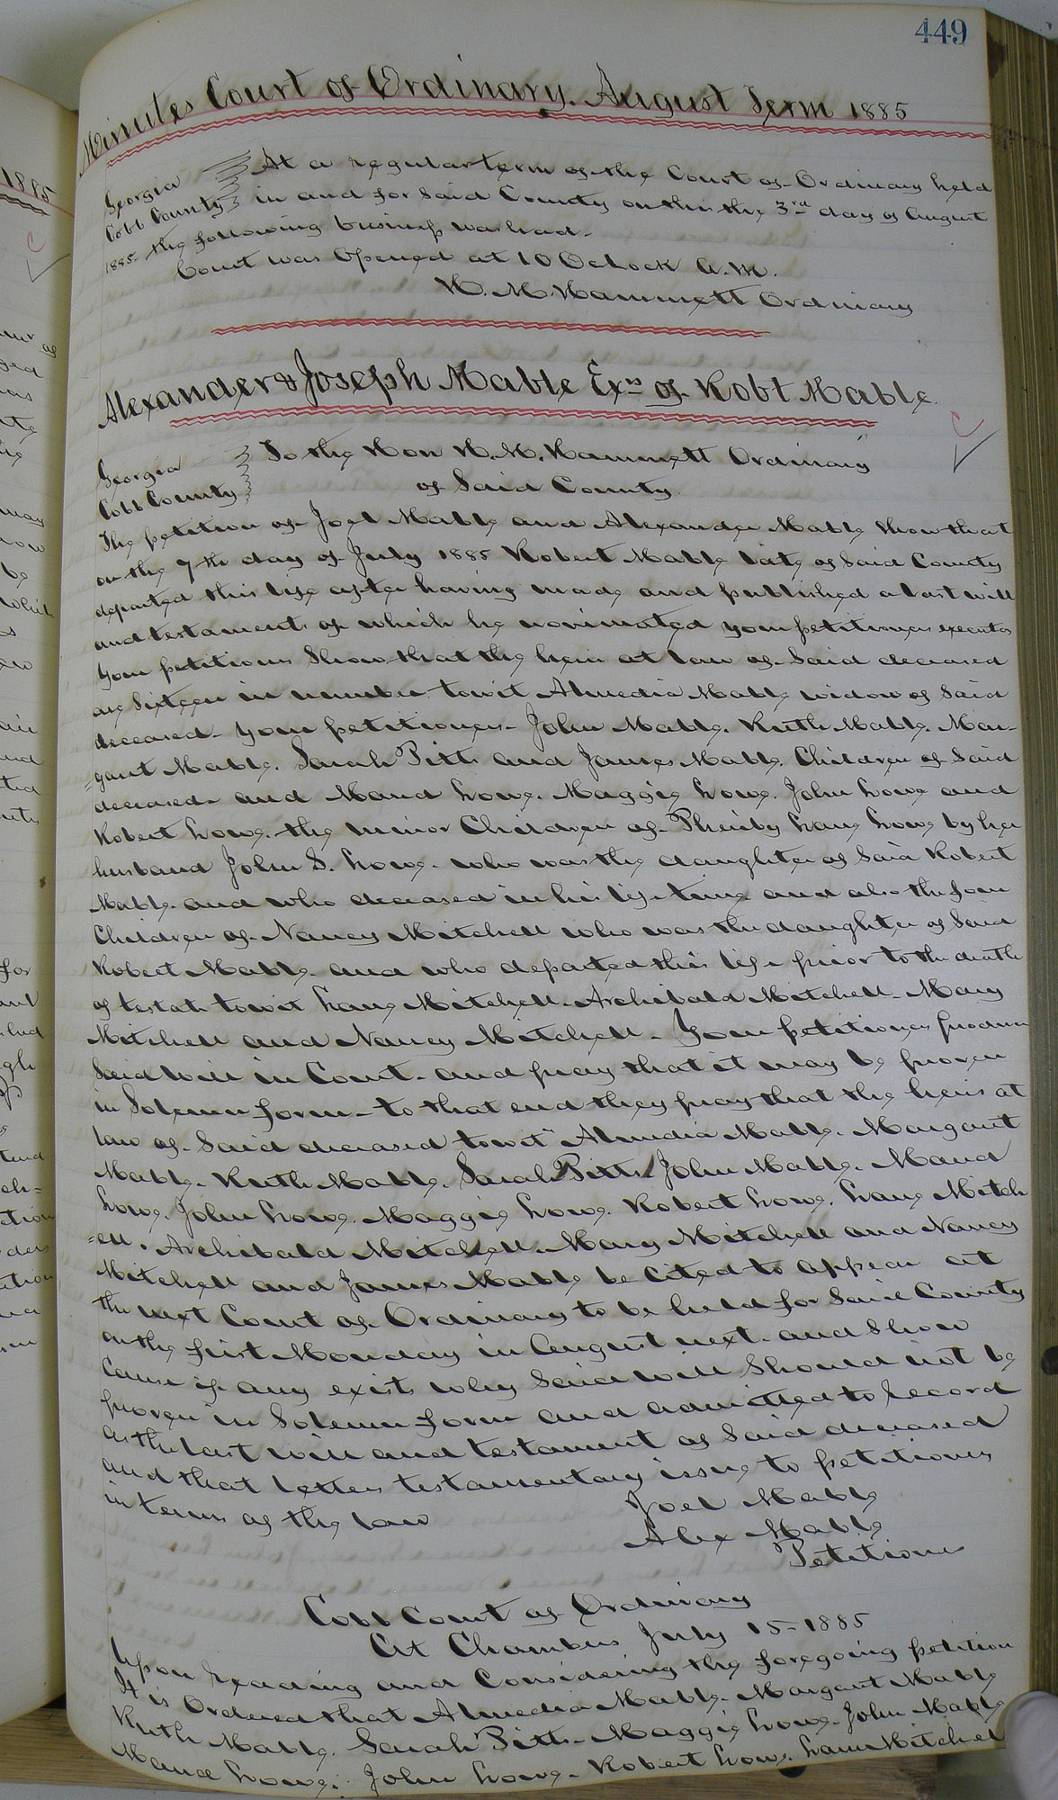 449
Minutes Court of Ordinary. August Term 1885
Georgia
Cobb County
At a regular term of the Court of Ordinary held
in and for Said County on this the 3rd day of August
1885. the following business was had.
Court was Opened at 10 Oclock A.M.
H. M. Hammett Ordinary
Alexander & Joseph Mable Exrs of Robt Mable
Georgia
Cobb County
To the Hon H. M. Hammett Ordinary
of Said County
The petition of Joel Mable and Alexander Mable Show that
on the 7th day of July 1885 Robert Mable late of Said County
departed this life after having made and published a last will
and testament of which he nominated your petitioners executors
Your petitioners Show that the heirs at law of Said deceased
are Sixteen in number towit Almedia Mable widow of Said
deceased. Your petitioners. John Mable. Ruth Mable. Mar-
=garet Mable. Sarah Pitts and James Mable Children of Said
deceased. and Maud Lowe. Maggie Lowe. John Lowe and
Robert Lowe. the minor Children of Lowe by her
husband John S. Lowe. who was the daughter of Said Robert
Mable. and who deceased in his life time and also the four
Children of Nancy Mitchell who was the daughter of Said
Robert Mable. and who departed this life prior to the death
of testate towit Mitchell. Archibald Mitchell. Mary
Mitchell and Nancy Mitchell. Your petitioners produce
Said will in Court. and pray that it may be proven
in Solemn form. to that end they pray that the heirs at
law of Said deceased towit Almedia Mable. Margaret
Mable. Ruth Mable. Sarah Pitts John Mable. Maud
Lowe. John Lowe. Maggie Lowe. Robert Lowe. Mitch
=ell. Archibald Mitchell. Mary Mitchell and Nancy
Mitchell and James Mable be Cited to appear at
the next Court of Ordinary to be held for Said County
on the first Monday in August next. and Show
Cause if any exists why Said will Should not be
proven in Solemn form and admitted to record
as the last will and testament of Said deceased
and that letters testamentary issue to petitioners
in terms of the law
Joel Mable
Alex Mable
Petitioners
Cobb Court of Ordinary
At Chambers July 15-1885
Upon reading and Considering the foregoing petition
It is Ordered that Almedia Mable. Margaret Mable
Ruth Mable. Sarah Pitts. Maggie Lowe. John Mable
Maud Lowe. John Lowe. Robert Lowe. Mitchell